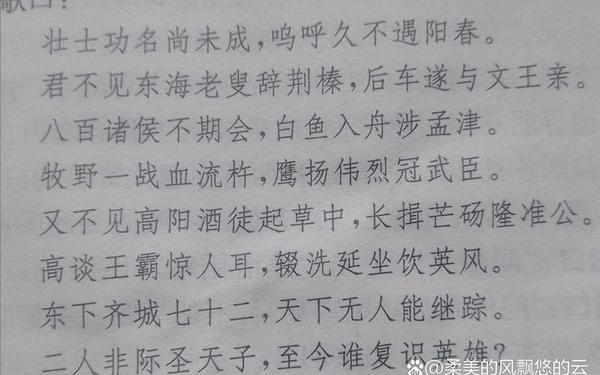 歌曰：
壮士功名尚未成，呜呼久不遇阳春。
君不见东海老叟辞荆榛，后车遂与文王亲。
八百诸侯不期会，白鱼入舟涉孟津。
牧野一战血流杵，鹰扬伟烈冠武臣。
又不见高阳酒徒起草中，长揖芒砀隆准公。
高谈王霸惊人耳，辍洗延坐饮英风。
东下齐城七十二，天下无人能继踪。
二人非际圣天子，至今谁复识英雄？
@柔美的风飘悠的云